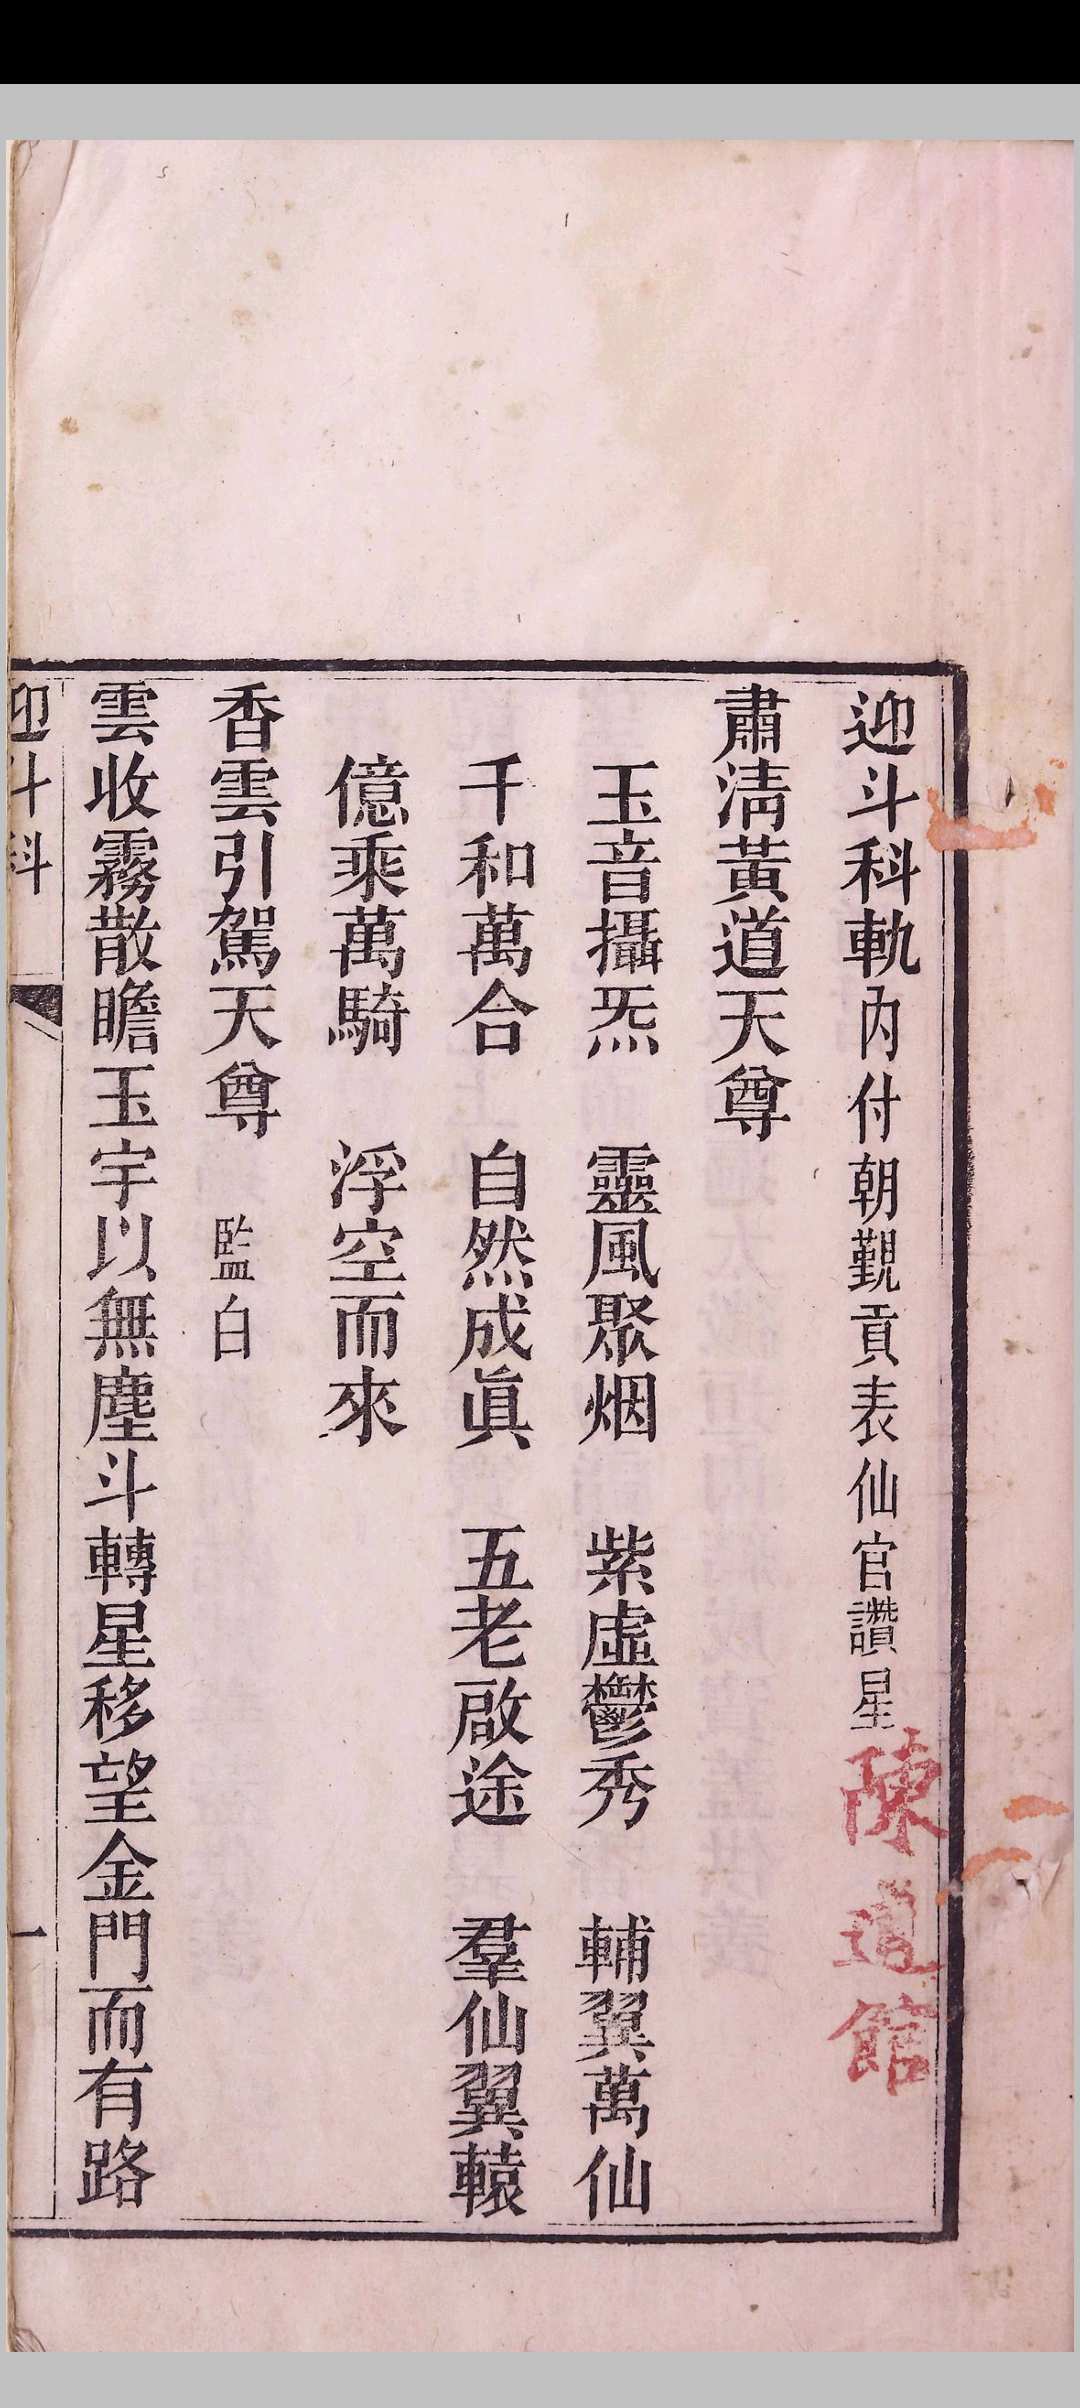 迎斗科軌內付朝覲貢表仙官讚星
陳道館
肅淸黃道天尊
玉音攝炁　靈風聚烟　紫虛鬱秀　輔翼萬仙
千和萬合　自然成眞　五老啟途　羣仙翼轅
億乘萬騎　浮空而來
香雲引駕天尊　監白
雲收霧散瞻玉宇以無塵斗轉星移望金門而有路
迎斗科　一